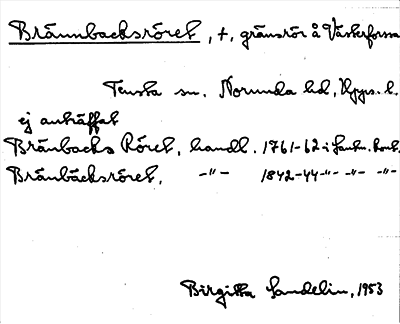 Brännbacksröret, +, gränsrör å Västerforsa
Tensta sn. Norunda hd, Upps. l.
ej anträffat
Bränbacks Röret, handl. 1761-62 i Lantm. kont.
Bränbäcksröret, -"- 1842-44 -"- -"- -"-
Birgitta Sandelin, 1953